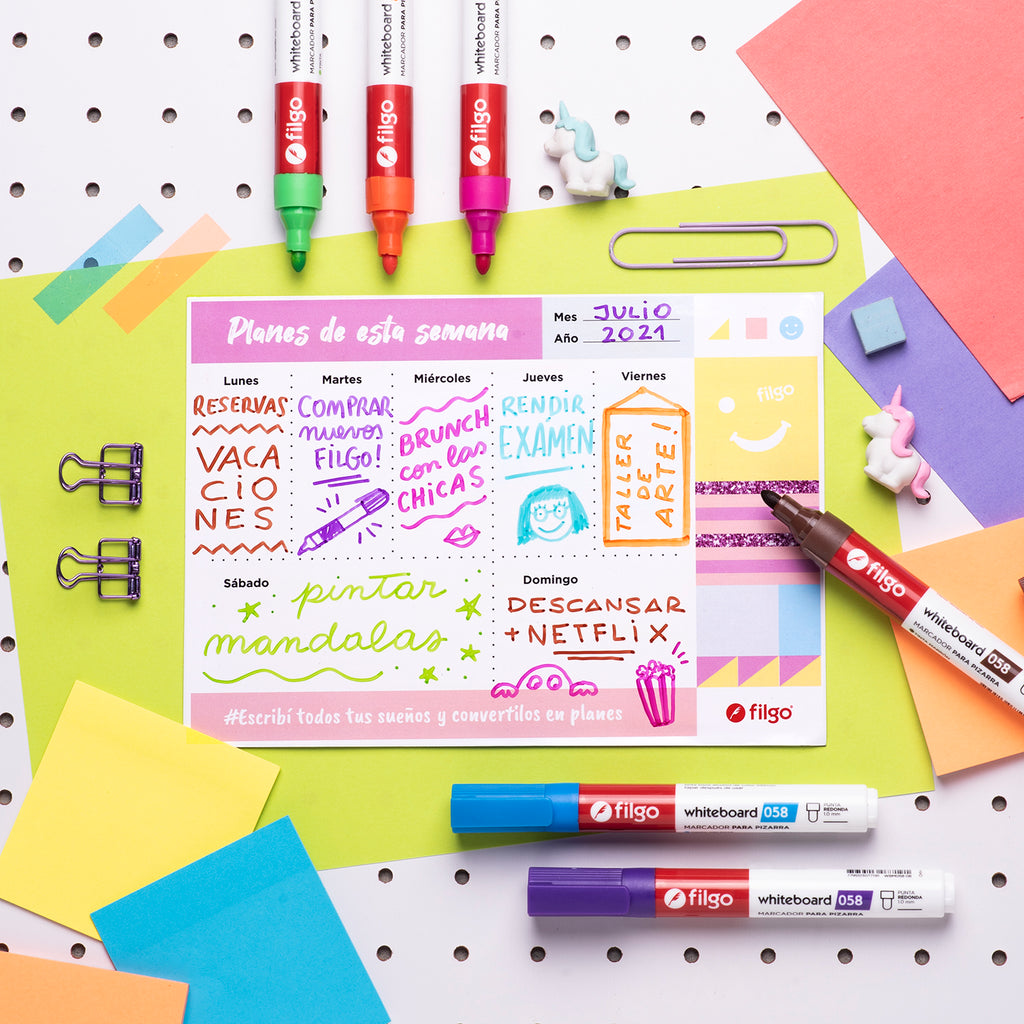 whiteboard
MARCADOR PARA PIZARRA
filgo
whiteboard
MARCADOR PARA PIZARRA
filgo
whiteboard
MARCADOR PARA PIZARRA
filgo
Planes de esta semana
Mes JULIO
Año 2021
Lunes
RESERVAS
VACA
CIO
NES
Martes
COMPRAR
nuevos
FILGO!
Miércoles
BRUNCH
con las
CHICAS
Jueves
RENDIR
EXÁMEN
Viernes
TALLER
DE
ARTE!
filgo
Sábado
pintar
mandalas
Domingo
DESCANSAR
+ NETFLIX
#Escribí todos tus sueños y convertilos en planes
filgo
filgo
whiteboard 058
MARCADOR PARA PIZARRA
filgo
whiteboard 058
MARCADOR PARA PIZARRA
PUNTA
REDONDA
1.0 mm
filgo
whiteboard 058
MARCADOR PARA PIZARRA
PUNTA
REDONDA
1.0 mm